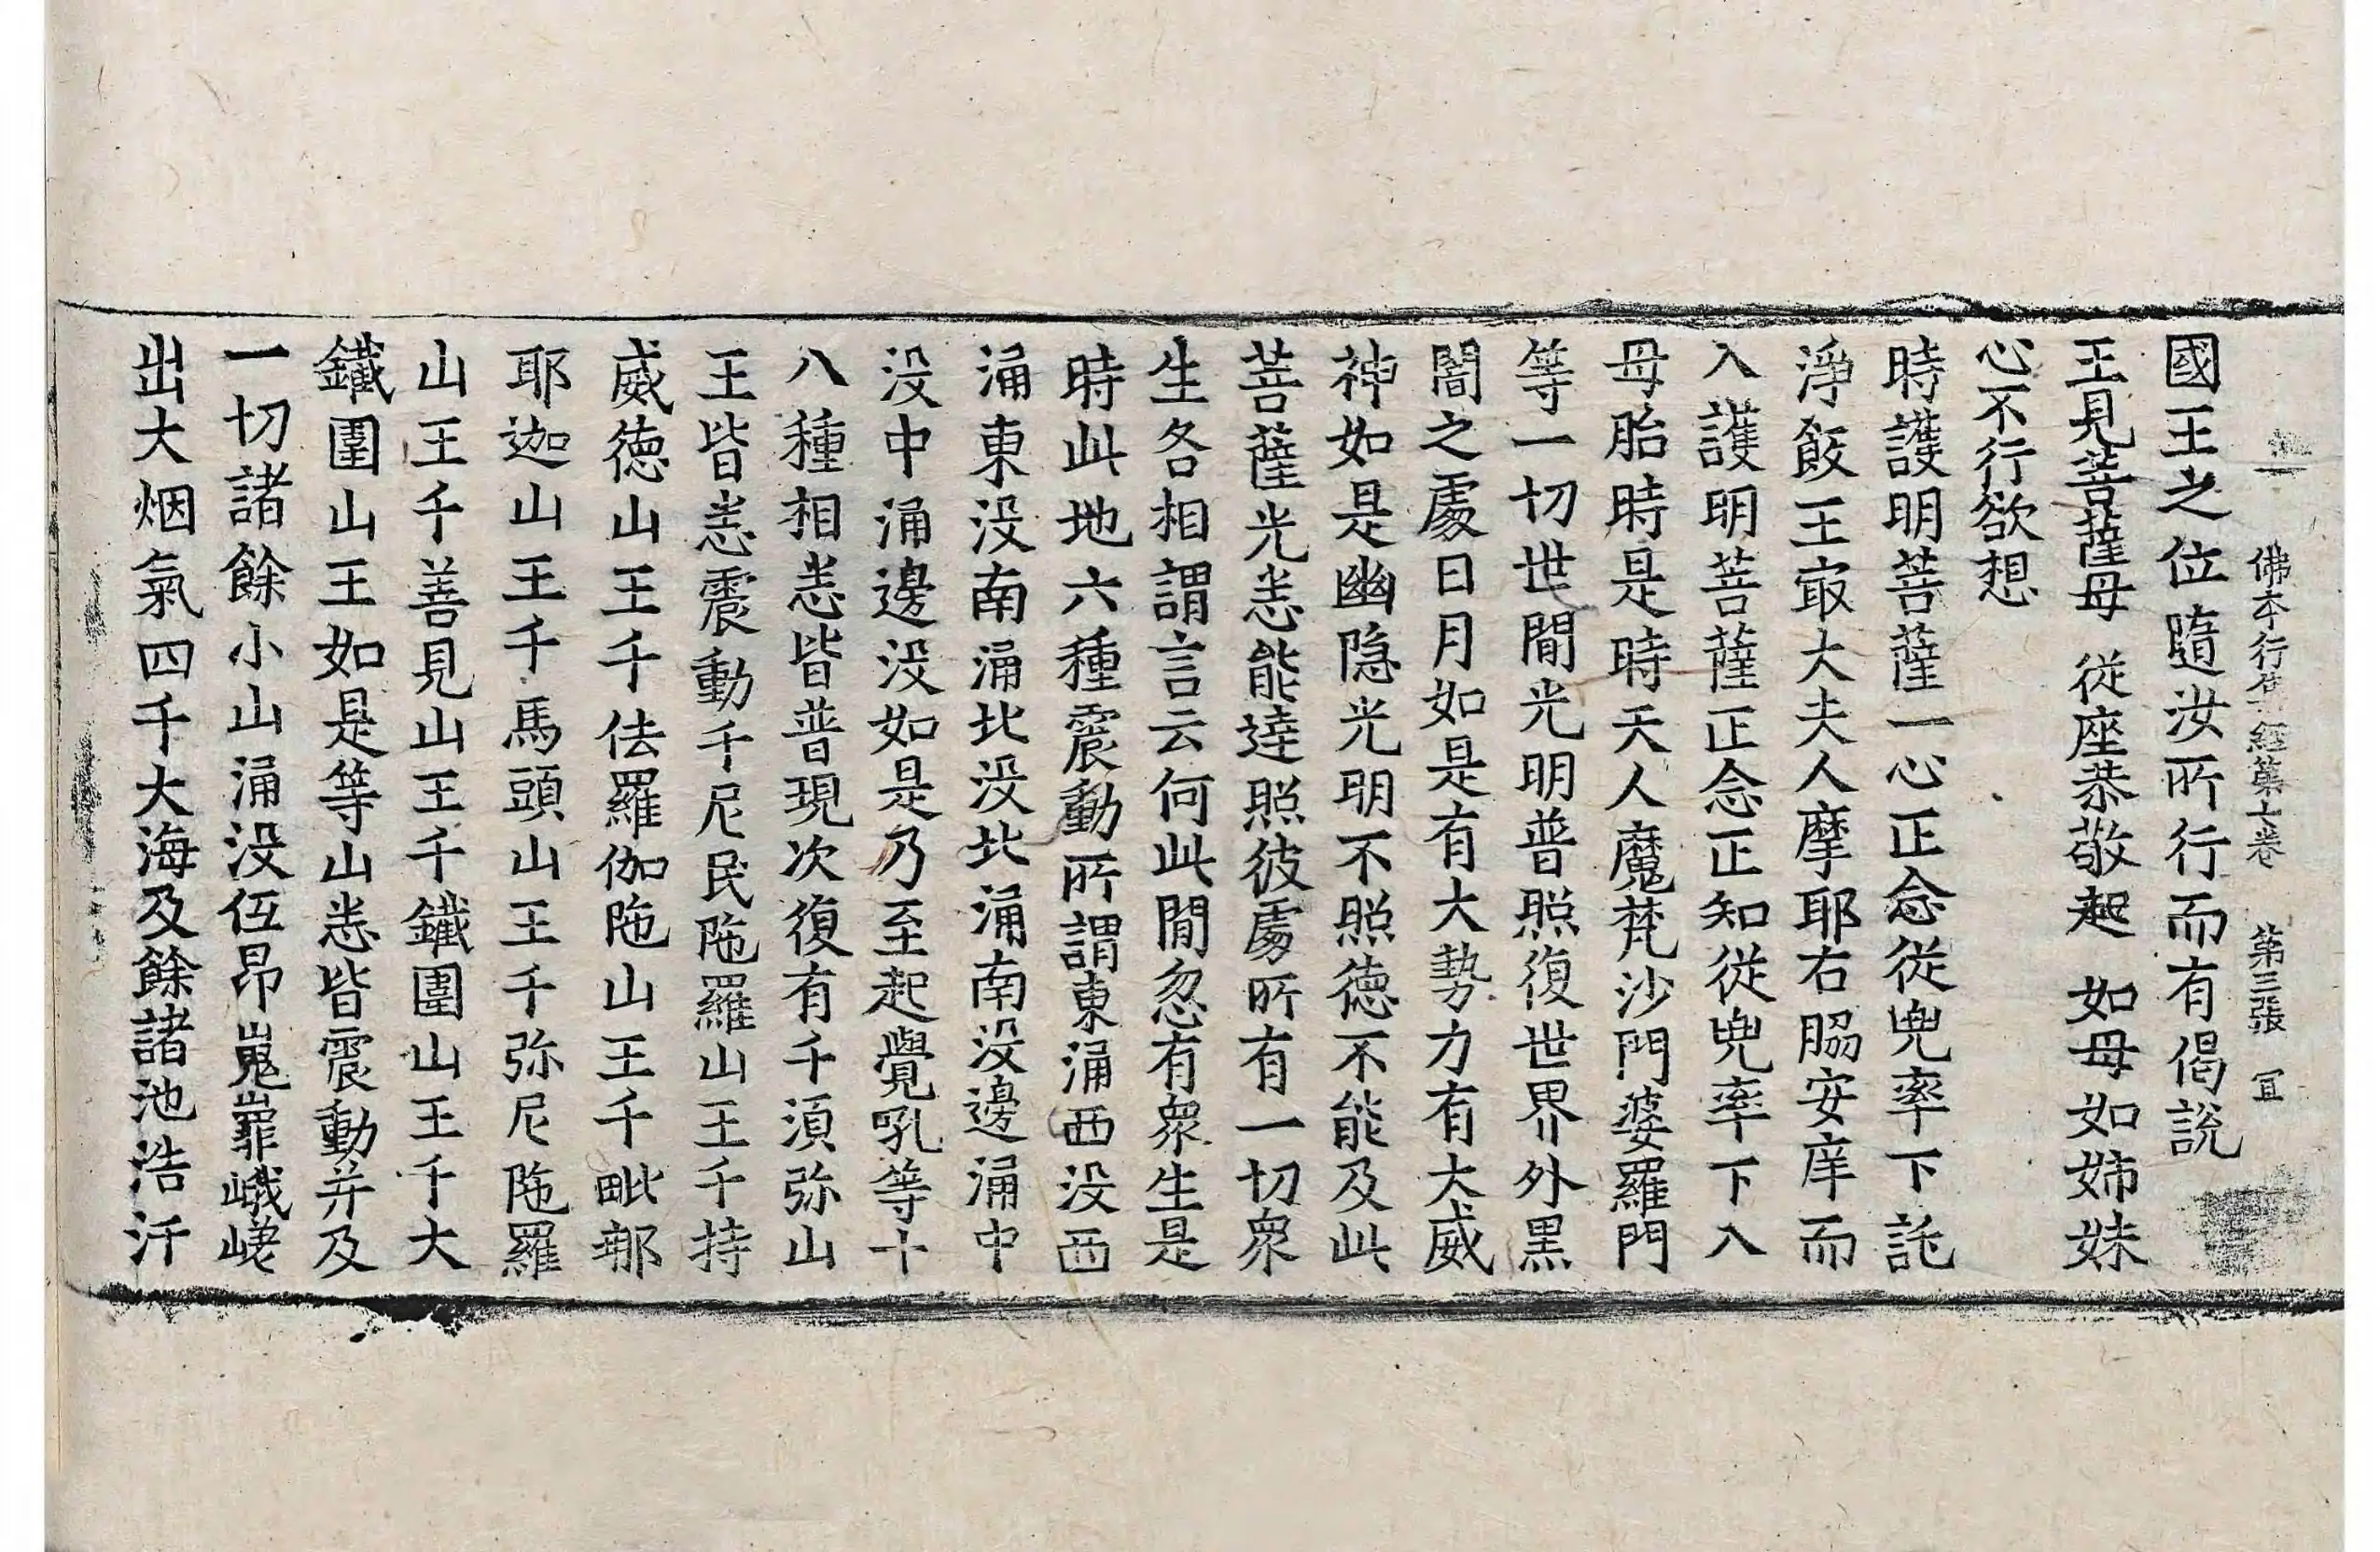 佛本行集經第七卷　第三張　宜
國王之位隨汝所行而有偈說
王見菩薩母　從座恭敬起　如母如姉妹
心不行欲想
時護明菩薩一心正念從兜率下託
淨飯王冣大夫人摩耶右脇安庠而
入護明菩薩正念正知從兜率下入
母胎時是時天人魔梵沙門婆羅門
等一切世間光明普照復世界外黑
闇之處日月如是有大勢力有大威
神如是幽隐光明不照德不能及此
菩薩光恙能達照彼處所有一切衆
生各相謂言云何此間忽有衆生是
時此地六種震動所謂東涌西没西
涌東没南涌北没北涌南没邊涌中
没中涌邊没如是乃至起覺吼等十
八種相恙皆普現次復有千湏弥山
王皆恙震動千尼民陁羅山王千持
威德山王千佉羅伽陁山王千毗那
耶迦山王千馬頭山王千弥尼陁羅
山王千善見山王千鐵圍山王千大
鐵圍山王如是等山恙皆震動并及
一切諸餘小山涌没伍昂嵬㠑峨嵯
出大烟氣四千大海及餘諸池浩汗